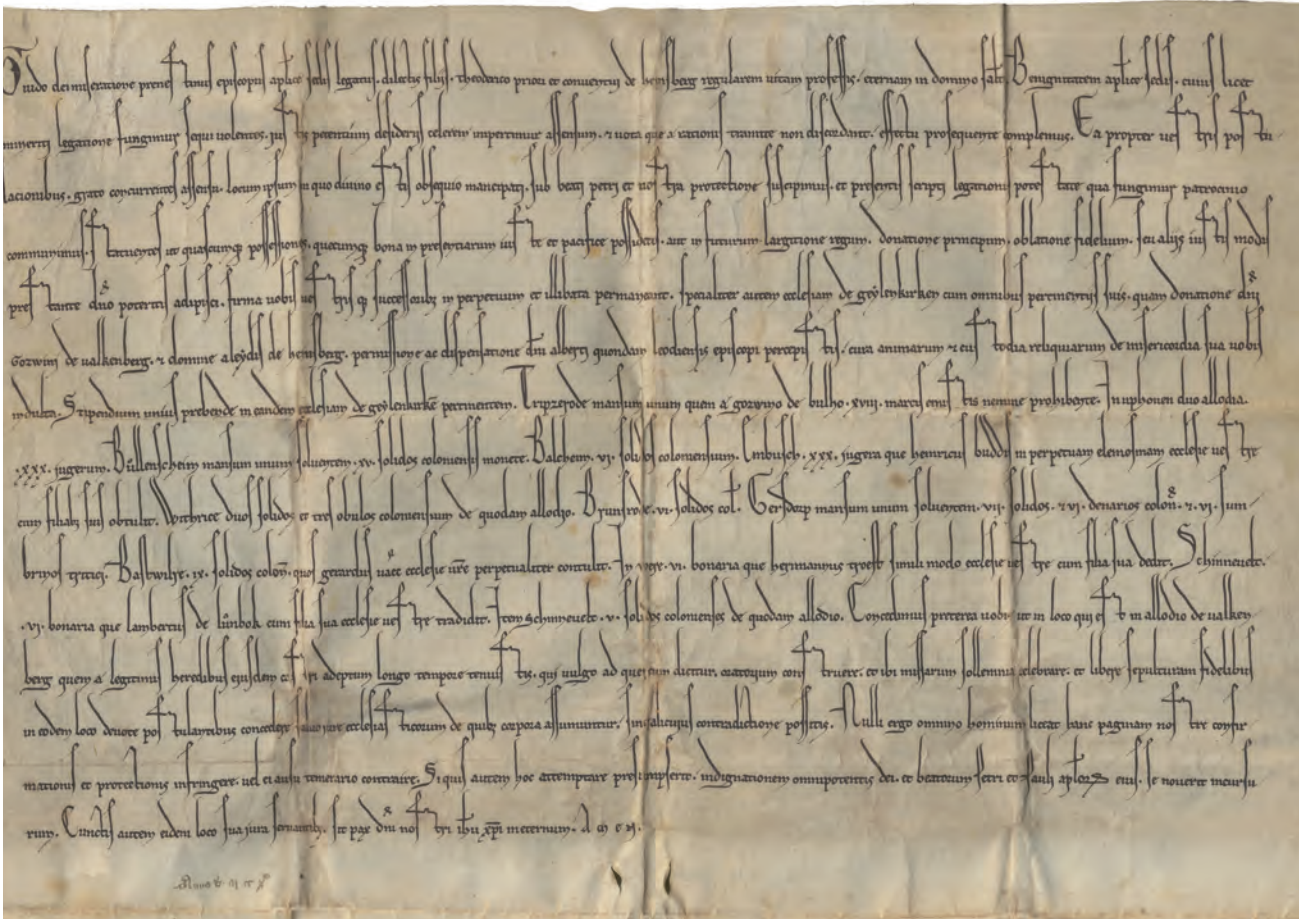 Guido dei miseratione prenestinus episcopus apl'ice sedis legatus. dilectis filiis. Theoderico priori et conventui de heinsberg regularem uitam professis. eternam in domino salt' Benignitatem apl'ice sedis. cuius licet
inmeriti legatione fungimur sequi uolentes. iustis petentium desideriis celerem impertimur assensum. et uota que a rationis tramite non discordant. effectu prosequente complemus. Ea propter uestris postu
lacionibus. grato concurrentes assensu. locum ipsum in quo diuino estis obsequio mancipati. sub beati petri et nostra protectione suscipimus. et presentis scripti legationis potestate qua fungimur patrocinio
communimus. Statuentes ut quascumq; possessiones. quecumq; bona in presenciarum iuste et pacifice possidetis. aut in futurum largitione regum. donatione principum. oblatione fidelium. seu aliis iustis modis
prestante dno poteritis adipisci. firma uobis uestrisq; successoribz in perpetuum et illibata permaneant. specialiter autem ecclesiam de geylenkirken cum omnibus pertinentiis suis. quam donatione dni
Gozwini de ualkenberg. et domine aleydis de heinsberg. permissione ac dispensatione dni alberti quondam leodiensis episcopi percepistis. cura animarum et custodia reliquiarum de misericordia sua uobis
indulta. Stipendium unius prebende in eandem ecclesiam de geylenkirke pertinentem. Tripzerode mansum unum quem a gozwino de bulho. xviii. marcis emistis nemine prohibente. In uphouen duo allodia.
.xxx. iugerum. Bullenscheim mansum unum soluentem. xv. solidos coloniensis monete. Balcheim. vi. solidos coloniensium. Embusch. xxx. iugera que heinricus budds in perpetuam elemosinam ecclesie uestre
cum filiabz suis obtulit. Withrice duos solidos et tres obulos coloniensium de quodam allodio. Brunsrode. vi. solidos col. Gersdorp mansum unum soluentem. vii. solidos. et vi. denarios colon. et. vi. sum
brinos tritici. Bastwilre. ix. solidos colon. quos gerardus ecclesie ure perpetualiter contulit. In. vi. bonaria que hermannus simili modo ecclesie uestre cum filia sua dedit. Schinneuelt.
.vi. bonaria que lambertus de limbok cum filia sua ecclesie uestre tradidit. Item schinneuelt. v. solidos colonienses de quodam allodio. Concedimus preterea uobis ut in loco qui est in allodio de ualken
berg quem a legitimis heredibus eiusdem adeptum longo tempore tenuistis. qui uulgo ad quercum dicitur. oratorium construere. et ibi missarum sollemnia celebrare. et libere sepulturam fidelibus
in eodem loco deuote postulantibus concedere saluo iure ecclesiasticorum de quibz corpora assumuntur. sine alicuius contradictione possitis. Nulli ergo omnino hominum liceat hanc paginam nostre confir
mationis et protectionis infringere. uel ei ausu temerario contraire. Si quis autem hoc attemptare presumpserit. indignationem omnipotentis dei. et beatorum petri et pauli aplor eius. se nouerit incursu
rum. Cunctis autem eidem loco sua iura seruantibz. sit pax dni nostri ihu xpi ineternum. A m e n.